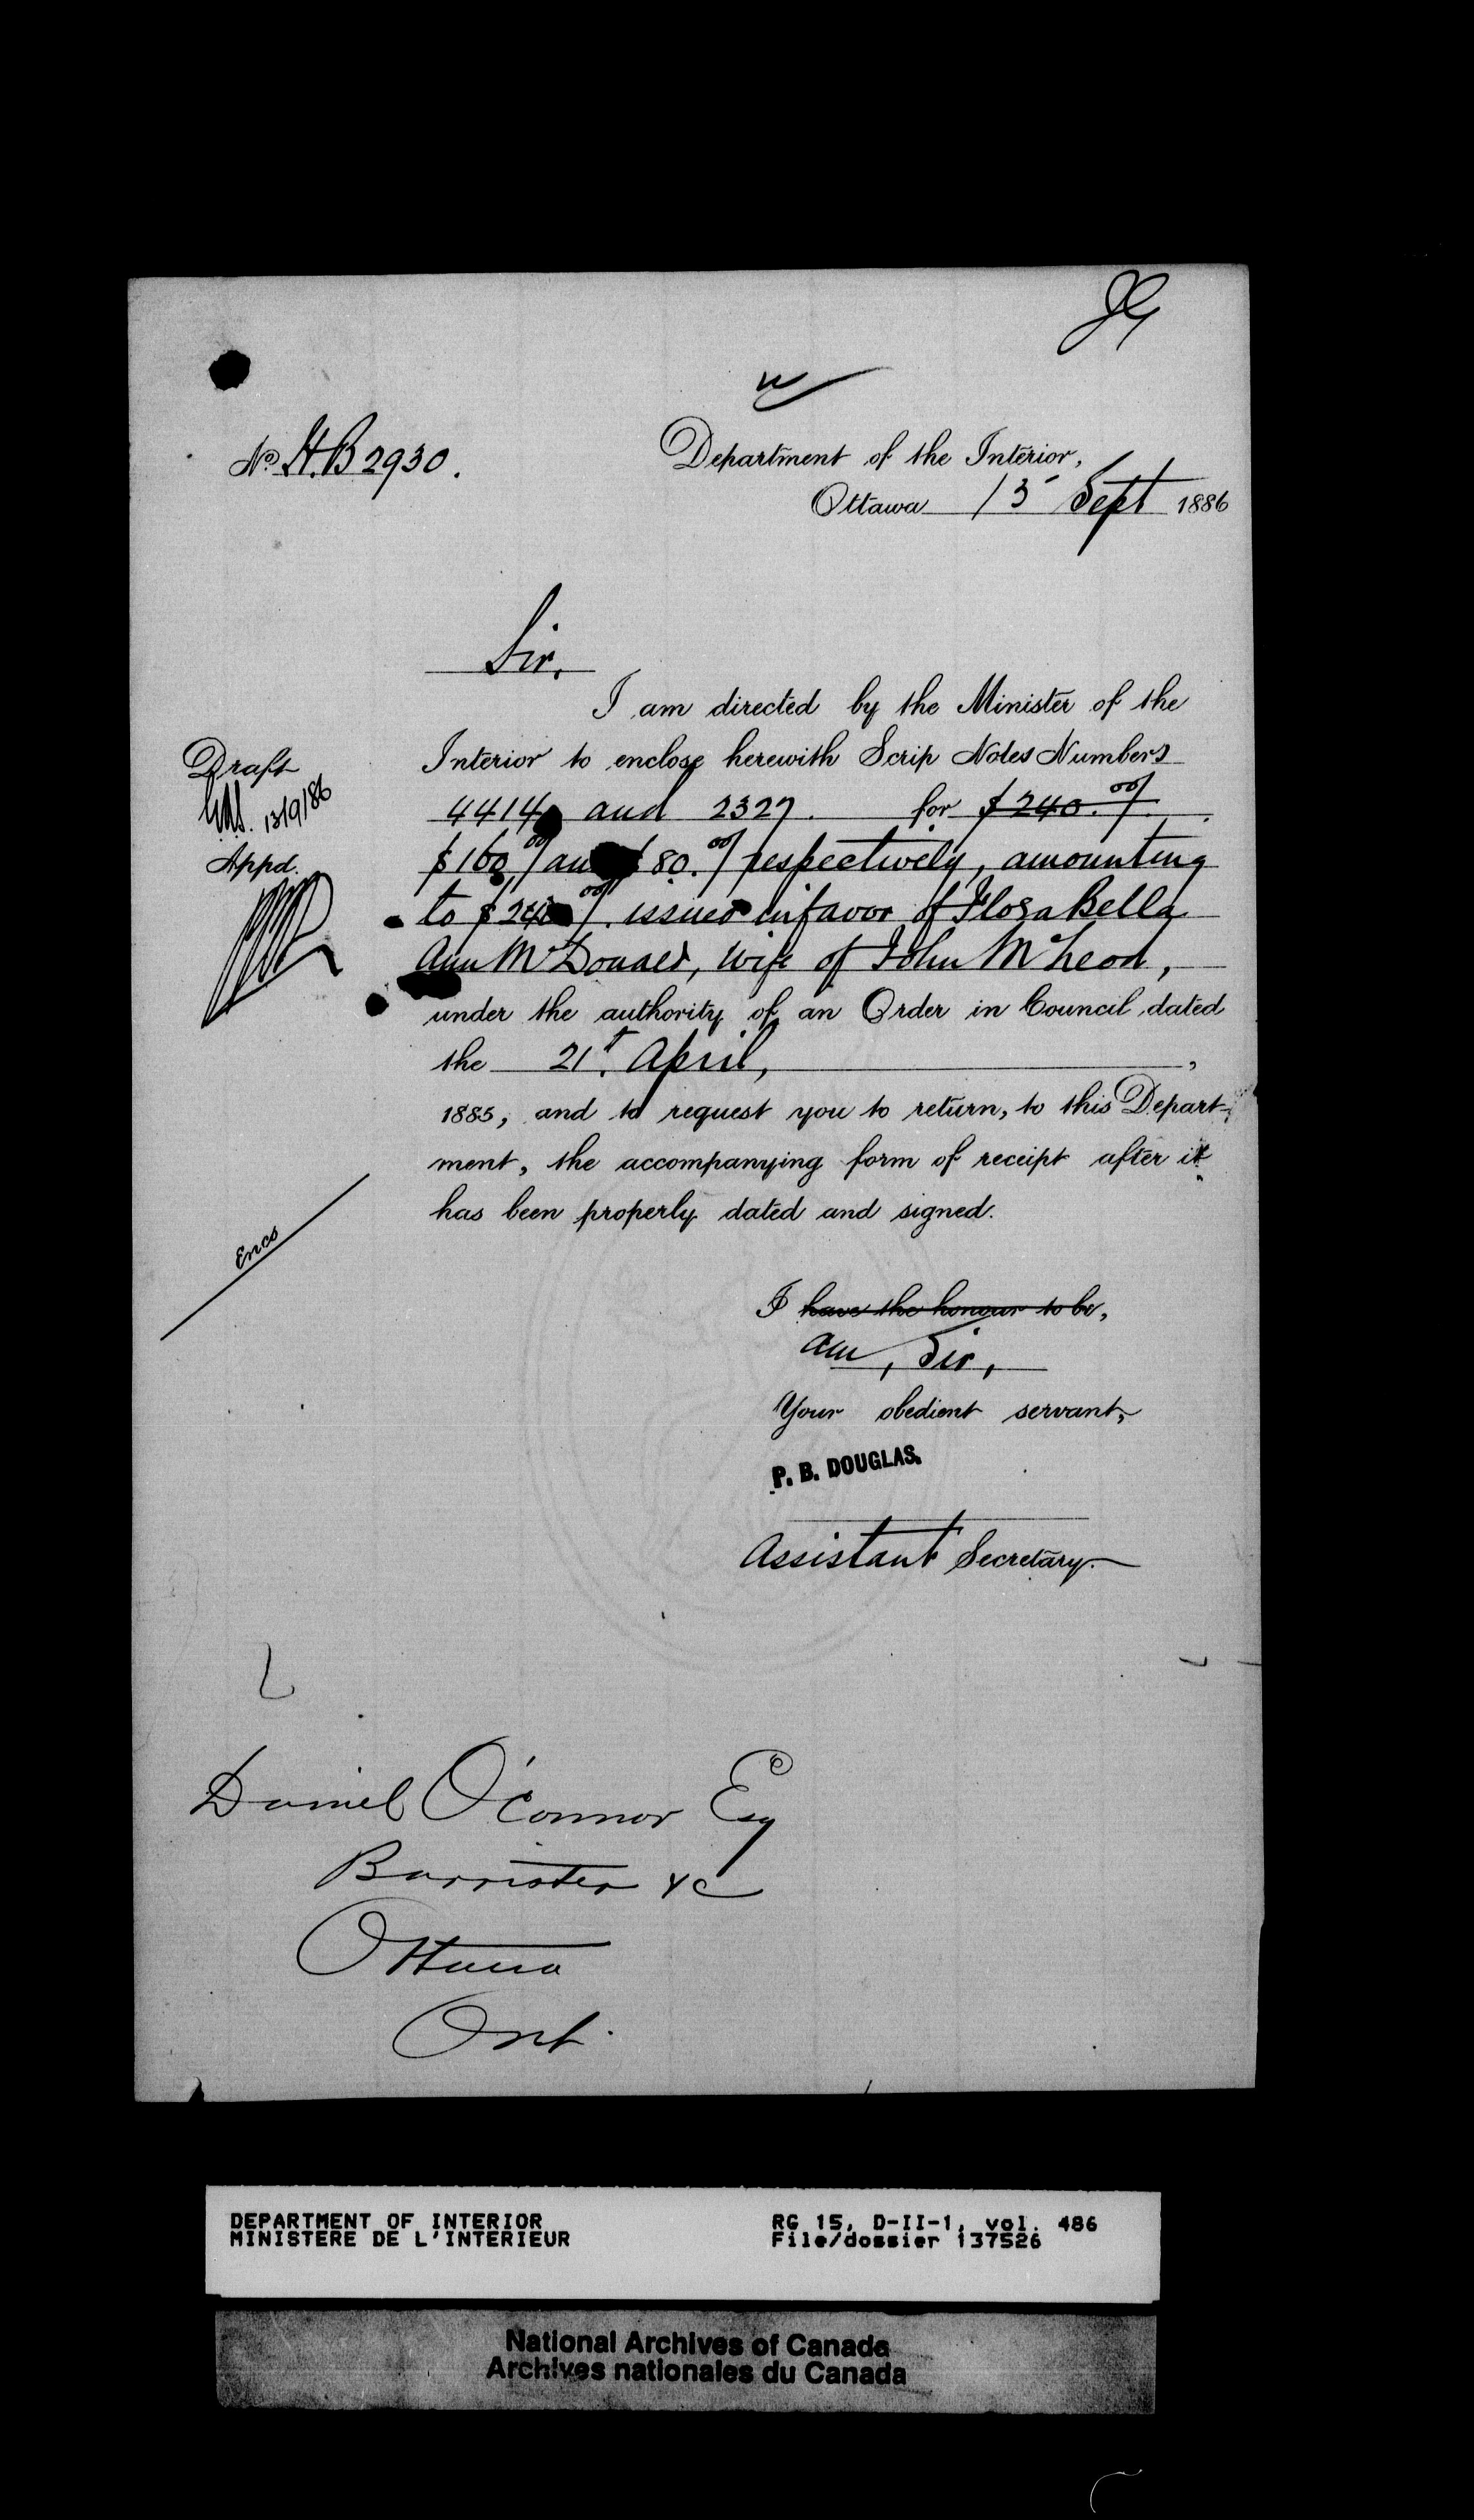 JG
No. H.B 2930.
Department of the Interior,
Ottawa 15 Sept 1886
Sir,
I am directed by the Minister of the
Interior to enclose herewith Scrip Notes Numbers
4414 and 2327. for $240.00/.
$160.00/ and $80.00/ respectively, amounting
to $240.00/. issued in favor of Flora Bella
Ann McDonald, wife of John McLeod,
under the authority of an Order in Council, dated
the 21st April,
1885, and to request you to return, to this Depart-
ment, the accompanying form of receipt after it
has been properly dated and signed.
Draft
13/9/86
Appd.
Encs
I have the honour to be,
am, Sir,
Your obedient servant,
P. B. DOUGLAS.
Assistant Secretary.
Daniel O'Connor Esq
Barrister &c
Ottawa
Ont.
DEPARTMENT OF INTERIOR RG 15, D-II-1, vol. 486
MINISTERE DE L'INTERIEUR File/dossier 137526
National Archives of Canada
Archives nationales du Canada